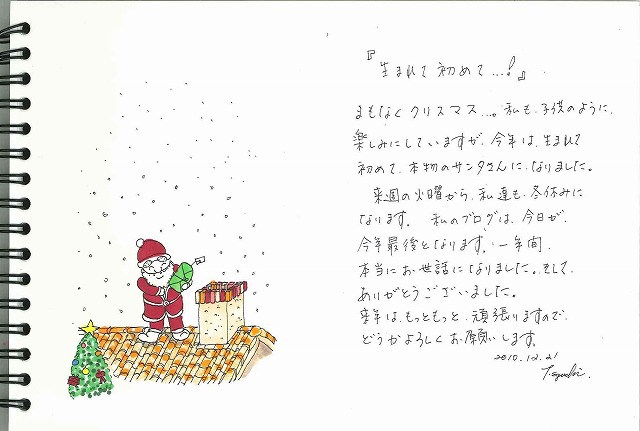 『生まれて初めて…!』
まもなくクリスマス…。私も、子供のように、
楽しみにしていますが、今年は、生まれて
初めて、本物のサンタさんに、なりました。
来週の火曜から、私達も、冬休みに
なります。 私のブログは、今日が、
今年最後となります。一年間、
本当にお世話になりました。そして、
ありがとうございました。
来年は、もっともっと、頑張りますので、
どうかよろしくお願いします。
2010.12.21